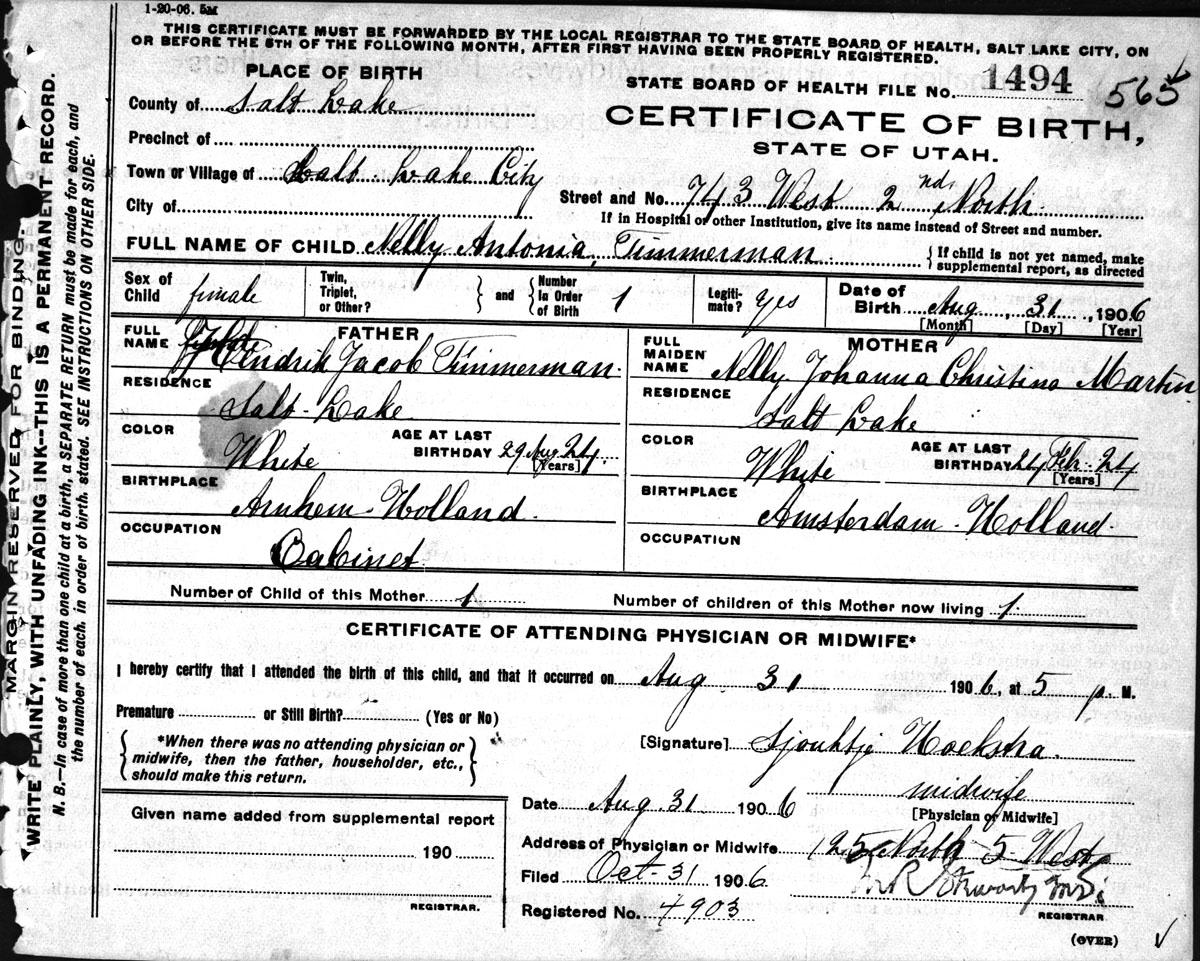 1-20-06. 5M
THIS CERTIFICATE MUST BE FORWARDED BY THE LOCAL REGISTRAR TO THE STATE BOARD OF HEALTH, SALT LAKE CITY, ON
OR BEFORE THE 5TH OF THE FOLLOWING MONTH, AFTER FIRST HAVING BEEN PROPERLY REGISTERED.
PLACE OF BIRTH
STATE BOARD OF HEALTH FILE NO. 1494 565
County of Salt Lake
CERTIFICATE OF BIRTH,
STATE OF UTAH.
Precinct of
Town or Village of Salt Lake City
Street and No. 743 West 2nd North
City of
If in Hospital or other Institution, give its name instead of Street and number.
FULL NAME OF CHILD Nelly Antonia, Timmerman
If child is not yet named, make
supplemental report, as directed
Sex of Child female Twin, Triplet, or Other? and Number in Order of Birth 1 Legiti-mate? Yes Date of Birth Aug, 31, 1906
[Month] [Day] [Year]
FATHER
FULL NAME Hendrik Jacob Timmerman.
RESIDENCE
Salt Lake
COLOR White AGE AT LAST BIRTHDAY 29 Aug 24.
[Years]
BIRTHPLACE
Arnhem-Holland.
OCCUPATION
Cabinet
MOTHER
FULL MAIDEN NAME Nelly Johanna Christina Martin
RESIDENCE
Salt Lake
COLOR White AGE AT LAST BIRTHDAY 24 Feb-24
[Years]
BIRTHPLACE
Amsterdam-Holland.
OCCUPATION
Number of Child of this Mother 1 Number of children of this Mother now living 1.
CERTIFICATE OF ATTENDING PHYSICIAN OR MIDWIFE*
I hereby certify that I attended the birth of this child, and that it occurred on Aug. 31 1906, at 5 p. M.
Premature or Still Birth? (Yes or No)
*When there was no attending physician or
midwife, then the father, householder, etc.,
should make this return.
[Signature] Sjouktje Hoekstra.
midwife
[Physician or Midwife]
Date Aug. 31 1906
Given name added from supplemental report
190
REGISTRAR.
Address of Physician or Midwife 125 North 5 West
Filed Oct-31 1906.
Registered No. 4903
REGISTRAR.
(OVER)
MARGIN RESERVED FOR BINDING.
WRITE PLAINLY, WITH UNFADING INK--THIS IS A PERMANENT RECORD.
N. B.—In case of more than one child at a birth, a SEPARATE RETURN must be made for each, and
the number of each, in order of birth, stated. SEE INSTRUCTIONS ON OTHER SIDE.